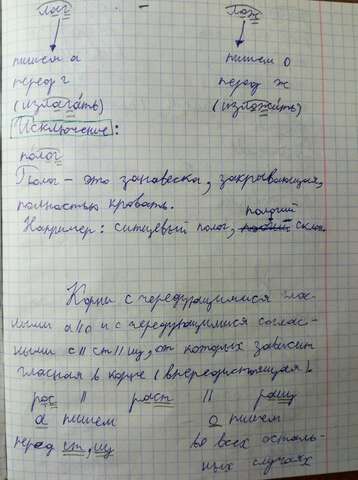 лаг - лож
пишем а пишем о
перед г перед ж
(излагать) (изложить)
Исключение:
полог
Полог - это занавеска, закрывающая,
полностью кровать.
пологий
Например: ситцевый полог, склон
Корни с чередующимися глас-
ными а//о и с чередующимися соглас-
ными с//ст//щ, от которых зависит
гласная в корне (впередистоящая).
рос // раст // ращ
а пишем о пишем
перед ст, щ во всех осталь-
ных случаях